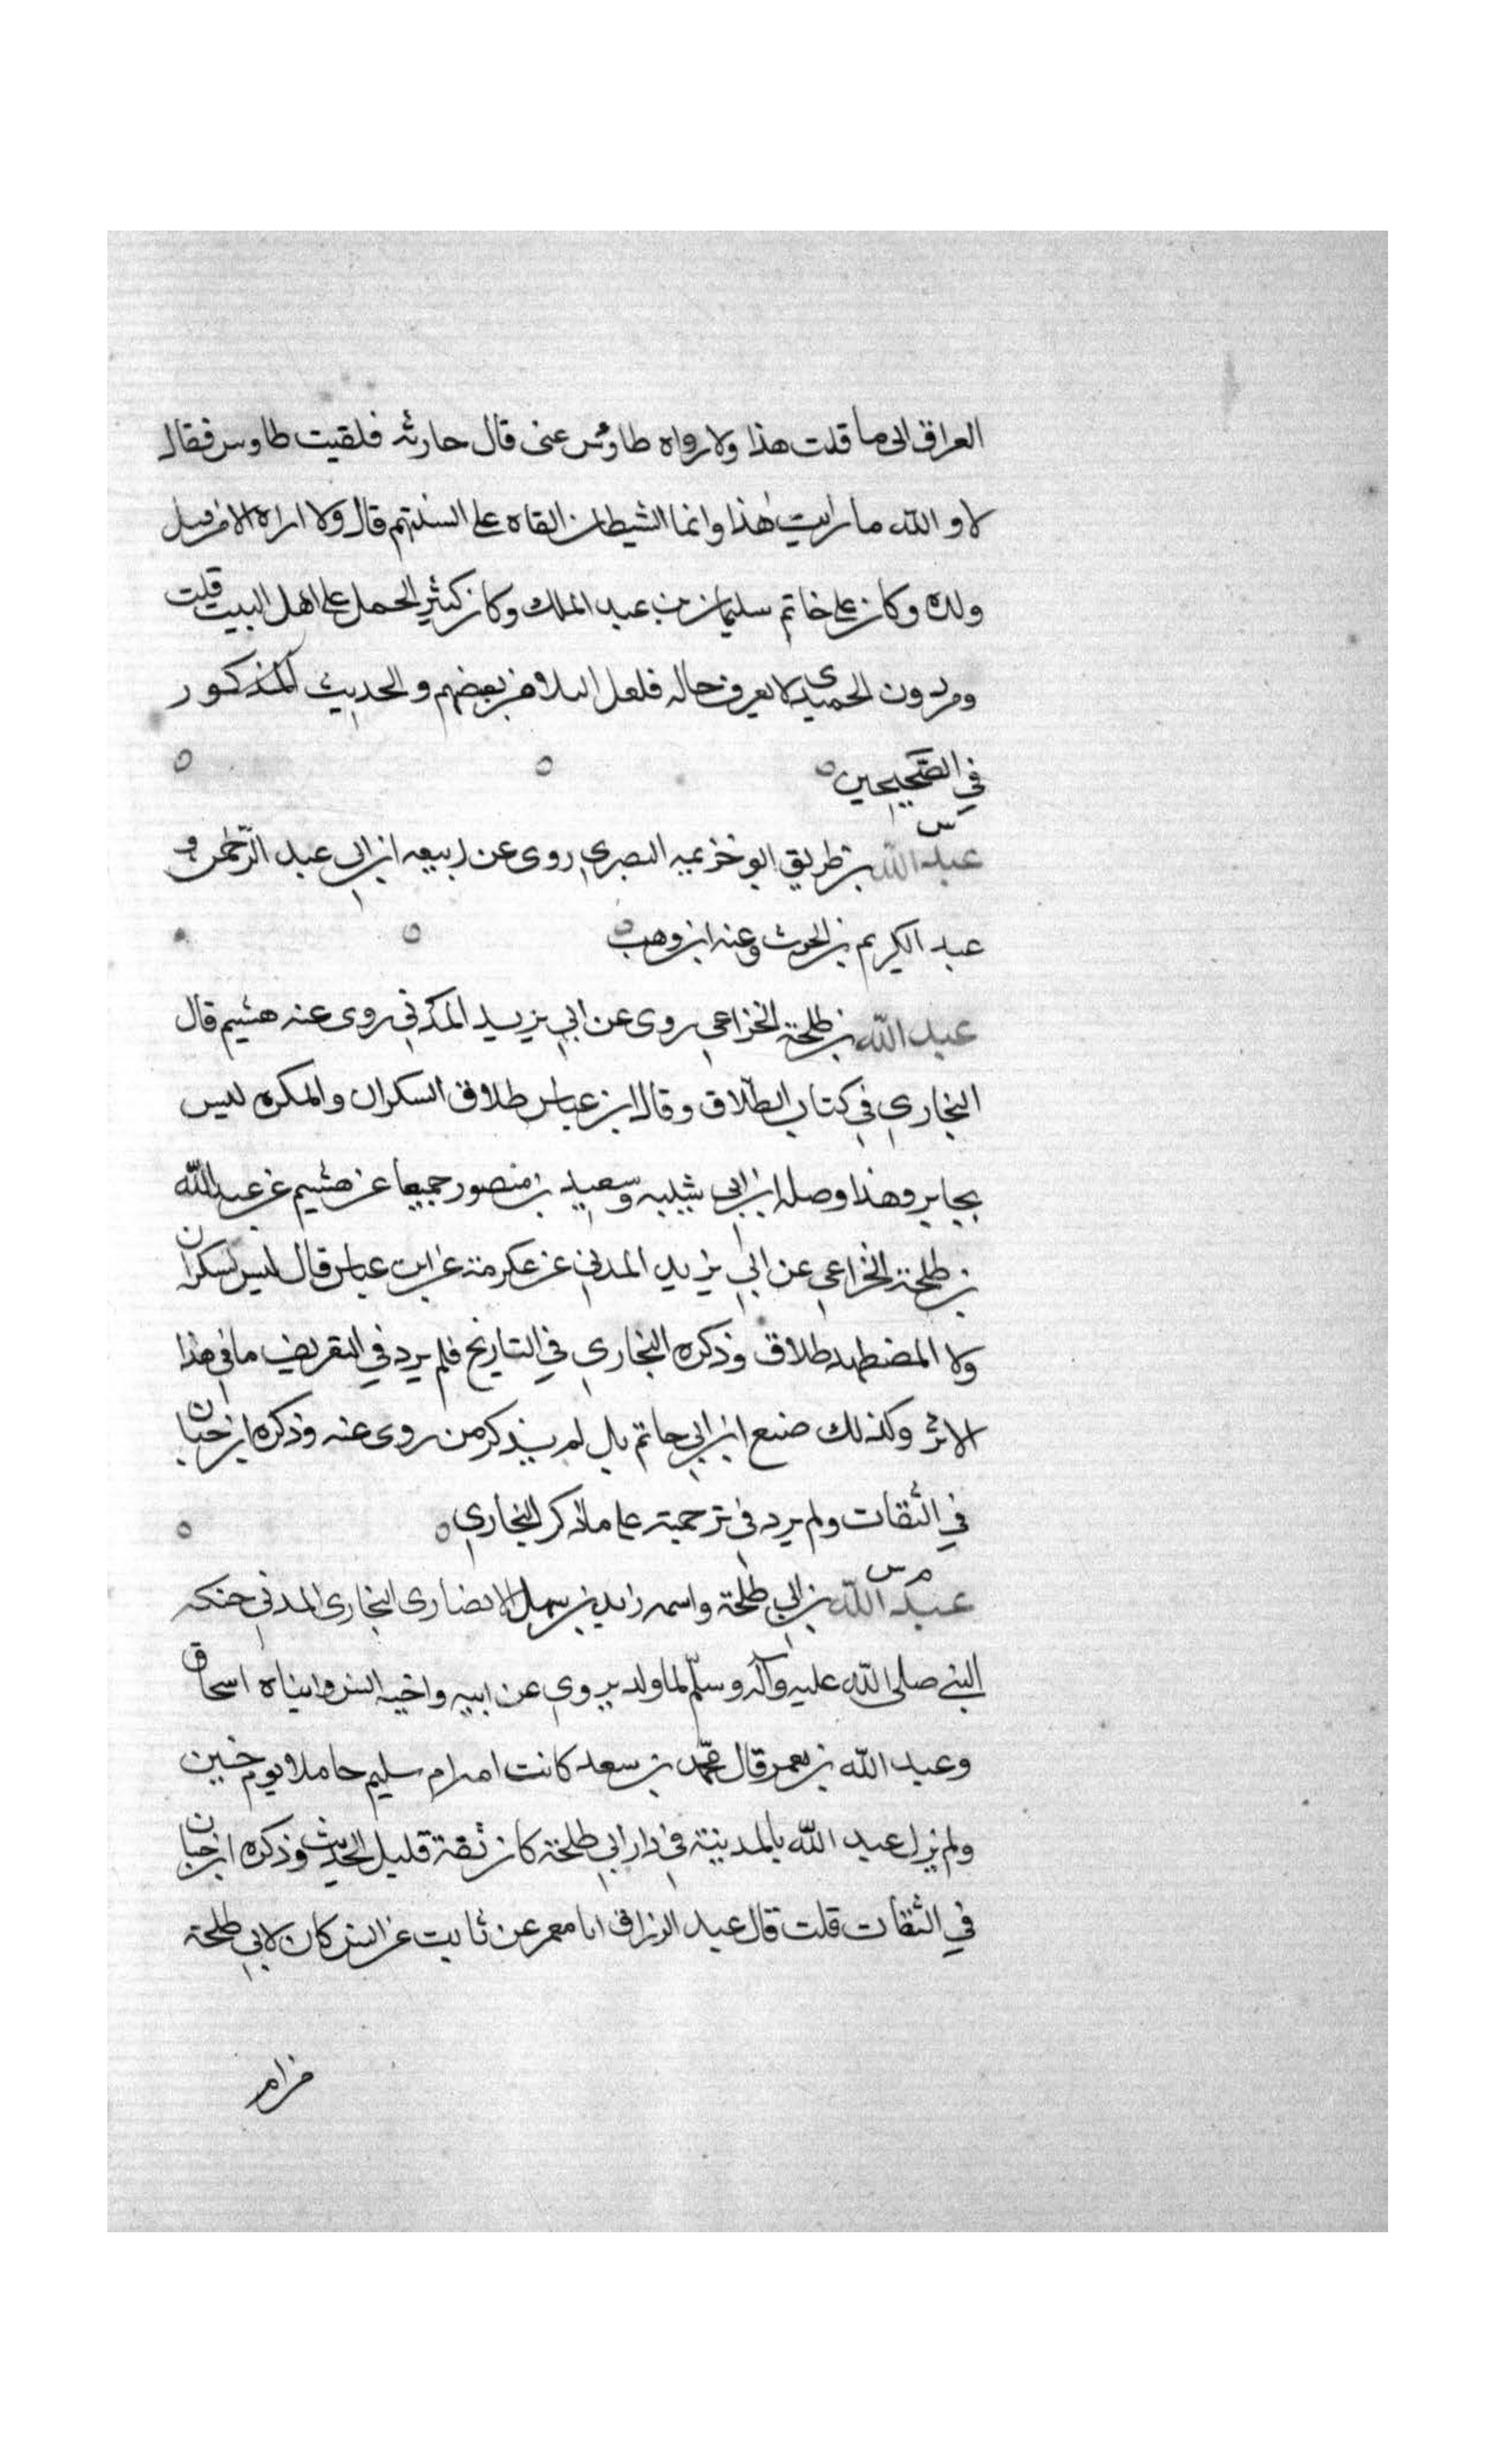 العراق انى ما قلت هذا ولا رواه طاوس عنى قال حارثه فلقيت طاوس فقال
لا و الله ما رايت هذا وانما الشيطان القاه على السنتهم قال ولا اراه الا من قبل
ولده وكان على خاتم سليمان بن عبد الملك وكان كثير الحمل على اهل البيت قلت
ومن دون الحميدى لا يعرف حاله فلعل البلا من بعضهم والحديث المذكور
في الصحيحين
س
عبد الله بن طريق ابو خزيمه البصرى روى عن ربيعه ابن ابى عبد الرحمن و
عبد الكريم بن الحرث وعنه ابن وهب
عبد الله بن طلحة الخزاعي روى عن ابي يزيد المدني روى عنه هشيم قال
البخاري في كتاب الطلاق وقال ابن عباس طلاق السكران والمكره ليس
بجايز وهذا وصله ابن ابي شيبه وسعيد بن منصور جميعا عن هشيم عن عبد الله
بن طلحة الخزاعي عن ابي يزيد المدني عن عكرمة عن ابن عباس قال ليس لسكران
ولا المضطهد طلاق وذكره البخاري في التاريخ فلم يرد في التعريف ما في هذا
الاثر وكذلك صنع ابن ابي حاتم بل لم يذكر من روى عنه وذكره ابن حبان
في الثقات ولم يرد في ترجمته على ما ذكر البخاري
م س
عبد الله بن ابي طلحة واسمه زيد بن سهل الانضارى البخارى المدني حنكه
النبي صلى الله عليه وآله وسلم لما ولد يروي عن ابيه واخيه انس وابناه اسحاق
وعبد الله بن يعمر قال محمد بن سعد كانت ام سليم حاملا يوم حنين
ولم يزل عبد الله بالمدينة في دار ابي طلحة كان ثقة قليل الحديث وذكره ابن حبان
في الثقات قلت قال عبد الرزاق انا معمر عن ثابت عن انس كان لابي طلحة